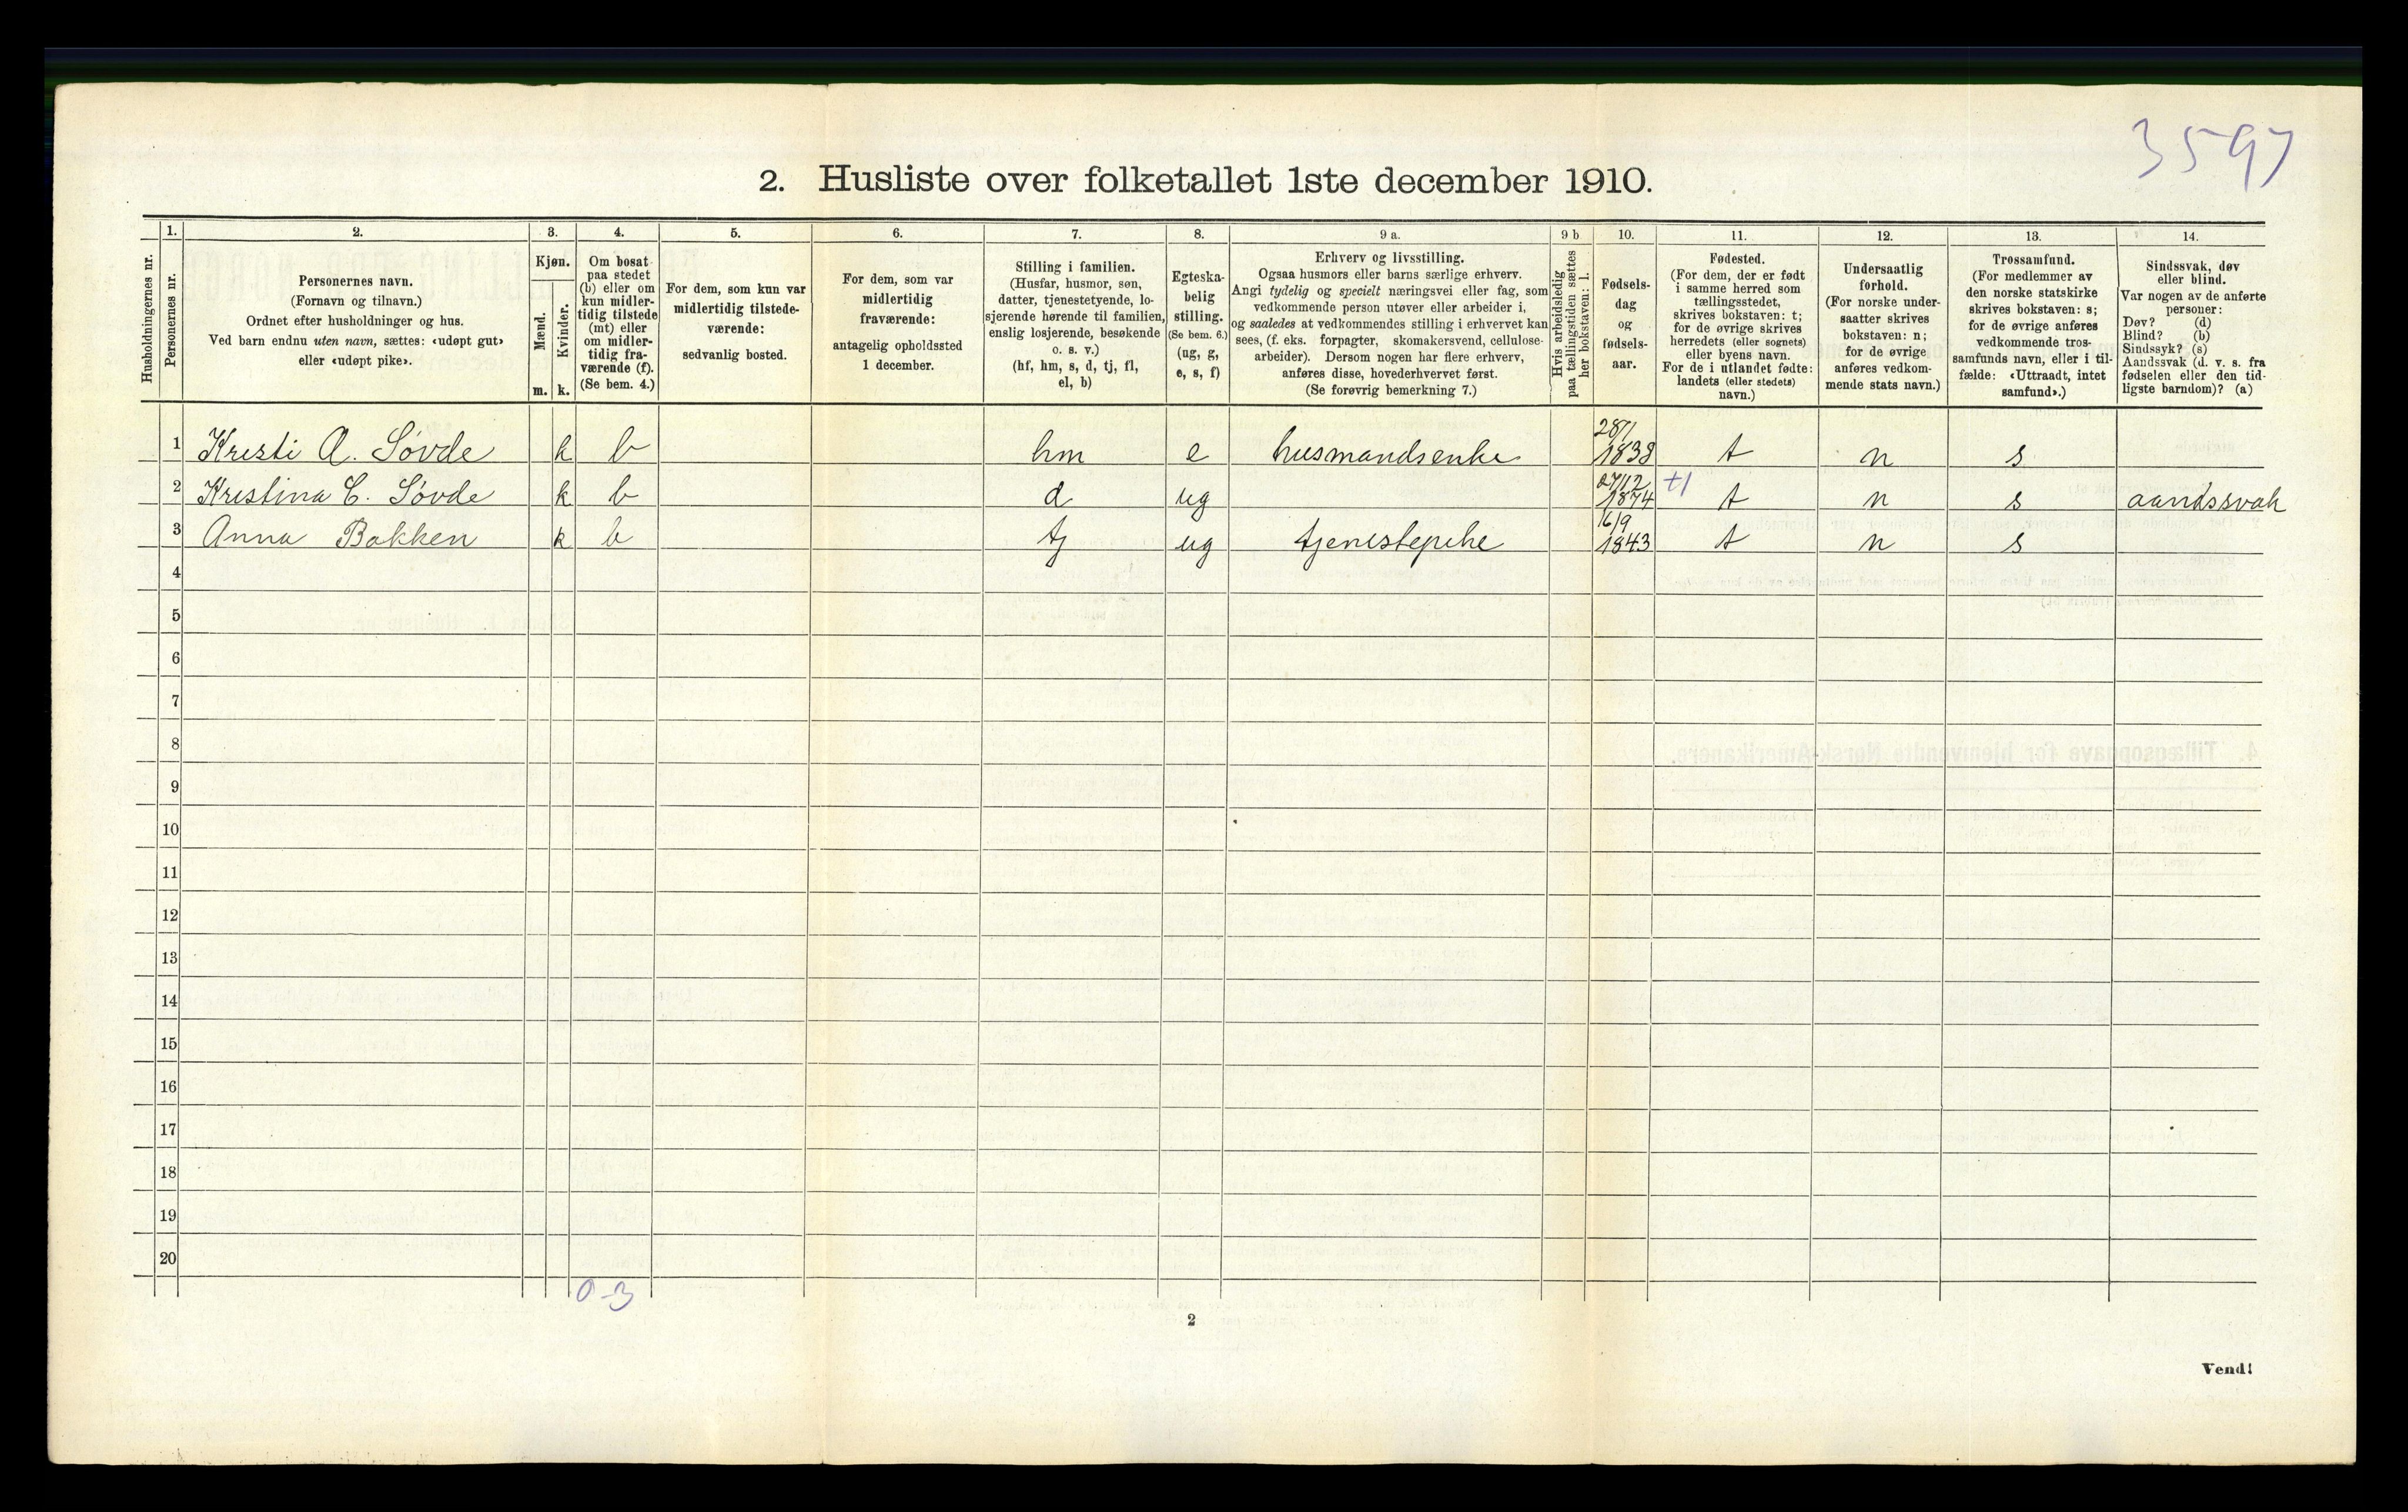 3597
2. Husliste over folketallet 1ste december 1910.
Husholdningernes nr.
1.
Personernes nr.
2.
Personernes navn.
(Fornavn og tilnavn.)
Ordnet efter husholdninger og hus.
Ved barn endnu uten navn, sættes: «udøpt gut»
eller «udøpt pike».
3.
Kjøn.
Mænd.
m.
Kvinder.
k.
4.
Om bosat
paa stedet
(b) eller om
kun midler-
tidig tilstede
(mt) eller
om midler-
tidig fra-
værende (f).
(Se bem. 4.)
5.
For dem, som kun var
midlertidig tilstede-
værende:
sedvanlig bosted.
6.
For dem, som var
midlertidig
fraværende:
antagelig opholdssted
1 december.
7.
Stilling i familien.
(Husfar, husmor, søn,
datter, tjenestetyende, lo-
sjerende hørende til familien,
enslig losjerende, besøkende
o. s. v.)
(hf, hm, s, d, tj, fl,
el, b)
8.
Egteska-
belig
stilling.
(Se bem. 6.)
(ug, g,
e, s, f)
9 a.
Erhverv og livsstilling.
Ogsaa husmors eller barns særlige erhverv.
Angi tydelig og specielt næringsvei eller fag, som
vedkommende person utøver eller arbeider i,
og saaledes at vedkommendes stilling i erhvervet kan
sees, (f. eks. forpagter, skomakersvend, cellulose-
arbeider). Dersom nogen har flere erhverv,
anføres disse, hovederhvervet først.
(Se forøvrig bemerkning 7.)
9 b
Hvis arbeidsledig
paa tællingstiden sættes
her bokstaven: l.
10.
Fødsels-
dag
og
fødsels-
aar.
11.
Fødested.
(For dem, der er født
i samme herred som
tællingsstedet,
skrives bokstaven: t;
for de øvrige skrives
herredets (eller sognets)
eller byens navn.
For de i utlandet fødte:
landets (eller stedets)
navn.)
12.
Undersaatlig
forhold.
(For norske under-
saatter skrives
bokstaven: n;
for de øvrige
anføres vedkom-
mende stats navn.)
13.
Trossamfund.
(For medlemmer av
den norske statskirke
skrives bokstaven: s;
for de øvrige anføres
vedkommende tros-
samfunds navn, eller i til-
fælde: «Uttraadt, intet
samfund».)
14.
Sindssvak, døv
eller blind.
Var nogen av de anførte
personer:
Døv? (d)
Blind? (b)
Sindssyk? (s)
Aandssvak (d. v. s. fra
fødselen eller den tid-
ligste barndom)? (a)
1 Kresti A. Søvde k b hm e husmandsenke 28/1 1838 t n s
2 Krestina C. Søvde k b d ug 27/12 1874 t1 t n s aandssvak
3 Anna Bakken k b tj ug tjenestepike 16/9 1843 t n s
4
5
6
7
8
9
10
11
12
13
14
15
16
17
18
19
20
0-3
2
Vend!